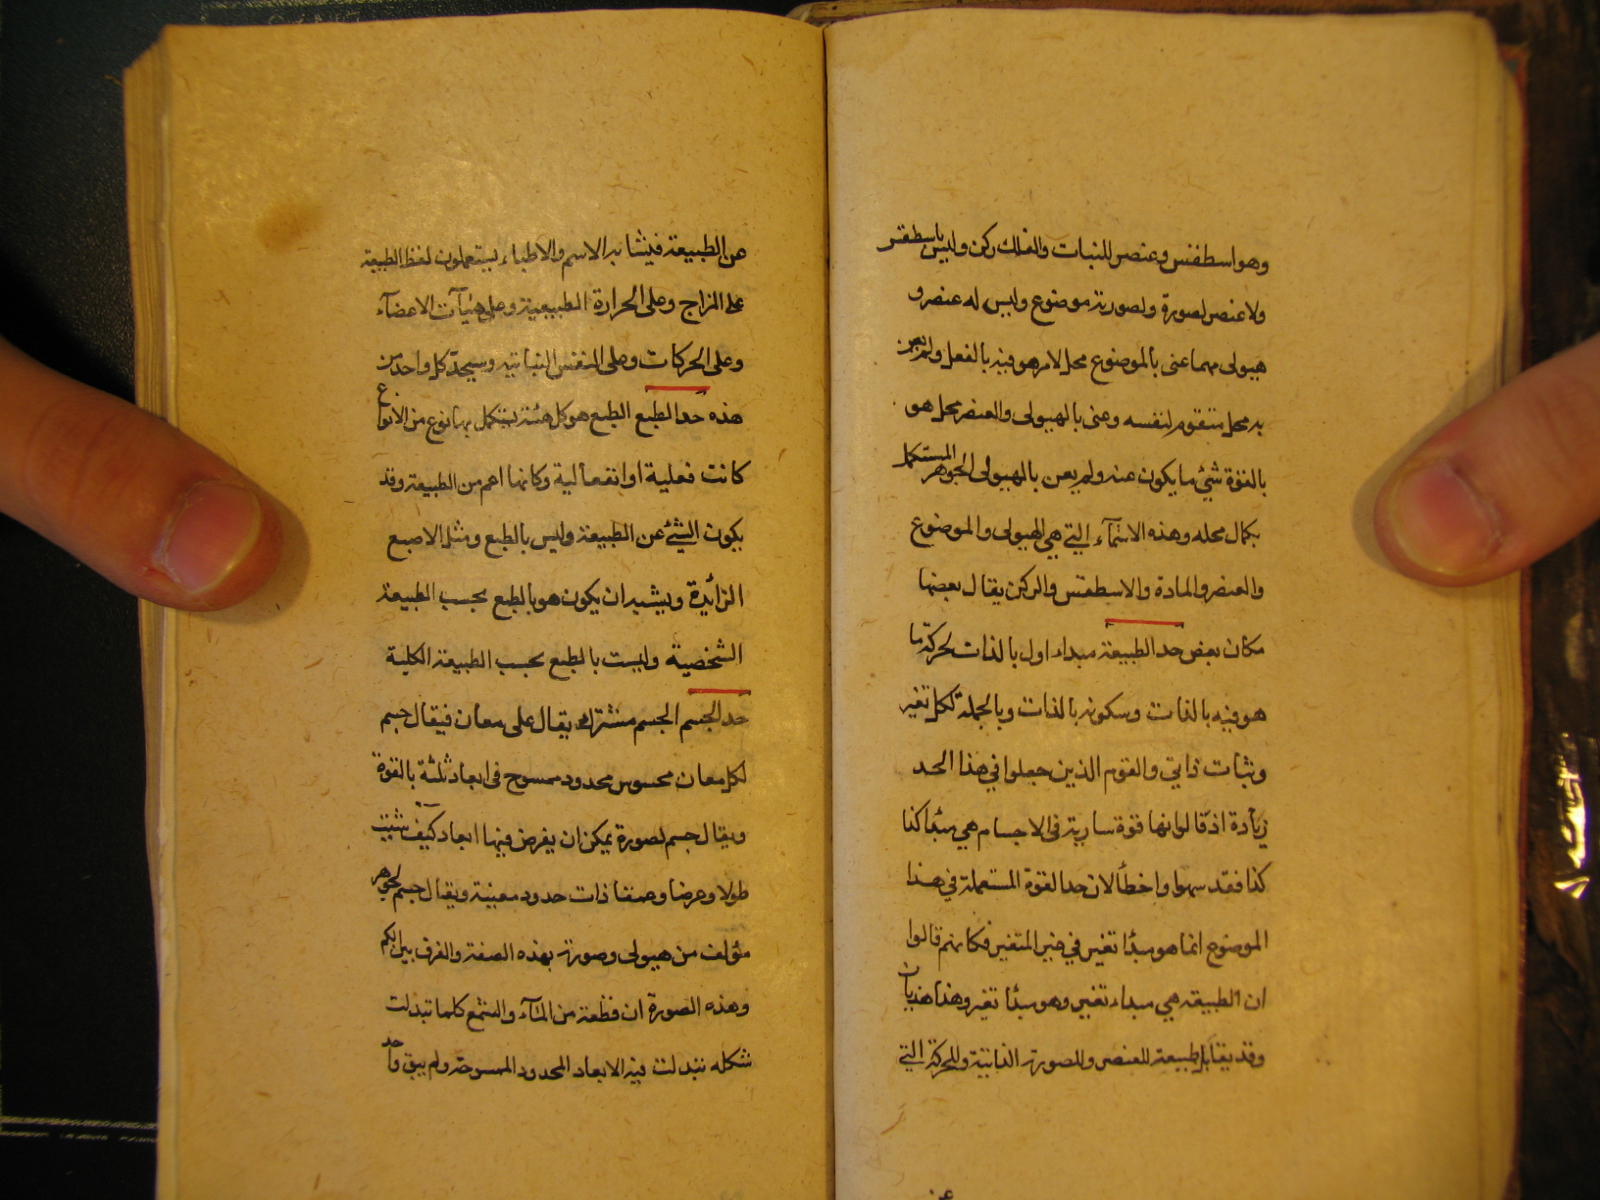 وهو اسطقس وعنصر للنبات والفلك ركن وليس باسطقس
ولا عنصر لصورة ولصورته موضوع وليس له عنصر و
هيولى مهما عنى بالموضوع محل لامر هو فيه بالفعل ولم يعن
به محل متقوم لنفسه وعنى بالهيولى والعنصر محل هو
بالقوة شئ ما يكون عنه ولم يعن بالهيولى الجوهر المستكمل
بكمال محله وهذه الاسمآء التي هي الهيولى والموضوع
والعنصر والمادة والاسطقس والركن يقال بعضها
مكان بعض حد الطبيعة مبداء اول بالذات لحركة ما
هو فيه بالذات وسكونه بالذات وبالجملة لكل تغير
وثبات ذاتي والقوم الذين جعلوا في هذا الحد
زيادة اذ قالوا انها قوة سارية في الاجسام هي مبدا كذا
كذا فقد سهوا واخطأ لان حد القوة المستعملة في هذا
الموضوع انما هو مبدأ تغير في غير المتغير فكانهم قالوا
ان الطبيعة هي مبداء تغير وهو مبدأ تغير وهذا هذيان
وقد يقال طبيعة للعنصر وللصورة الذاتية وللحركة التي
عن
عن الطبيعة فيتشابه الاسم والاطباء يستعملون لفظ الطبيعة
على المزاج وعلى الحرارة الطبيعية وعلى هيآت الاعضآء
وعلى الحركات وعلى النفس النباتيه وسيحد كل واحد من
هذه حد الطبع الطبع هو كل هئة يستكمل بها نوع من الانواع
كانت فعلية او انفعالية وكانها اعم من الطبيعة وقد
يكون الشئ عن الطبيعة وليس بالطبع ومثل الاصبع
الزائدة ويشبه ان يكون هو بالطبع بحسب الطبيعة
الشخصية وليست بالطبع بحسب الطبيعة الكلية
حد الجسم الجسم مشترك يقال على معان فيقال جسم
لكل معان محسوس محدود ممسوح في ابعاد ثلثة بالقوة
ويقال جسم لصورة يمكن ان يفرض فيها ابعاد كيف شئت
طولا وعرضا وعمقا ذات حدود معينة ويقال جسم لجوهر
مؤلف من هيولى وصورة بهذه الصفة والفرق بين الكم
وهذه الصورة ان قطعة من المآء والشمع كلما تبدلت
شكله تبدلت فيه الابعاد المحدود الممسوحة ولم يبق واحد